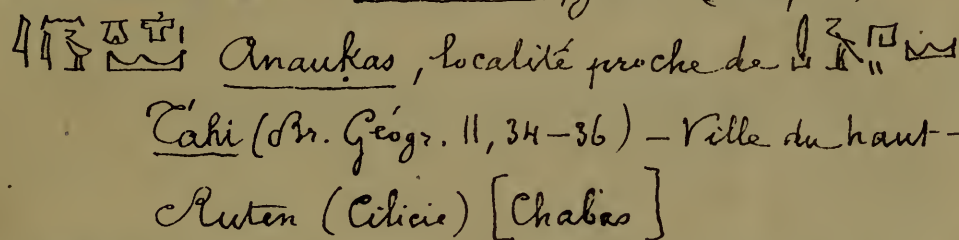 Anaukas, localité proche de
Tahi (Br. Géogr. II, 34-36) – Ville du haut-
Ruten (Cilicie) [Chabas]